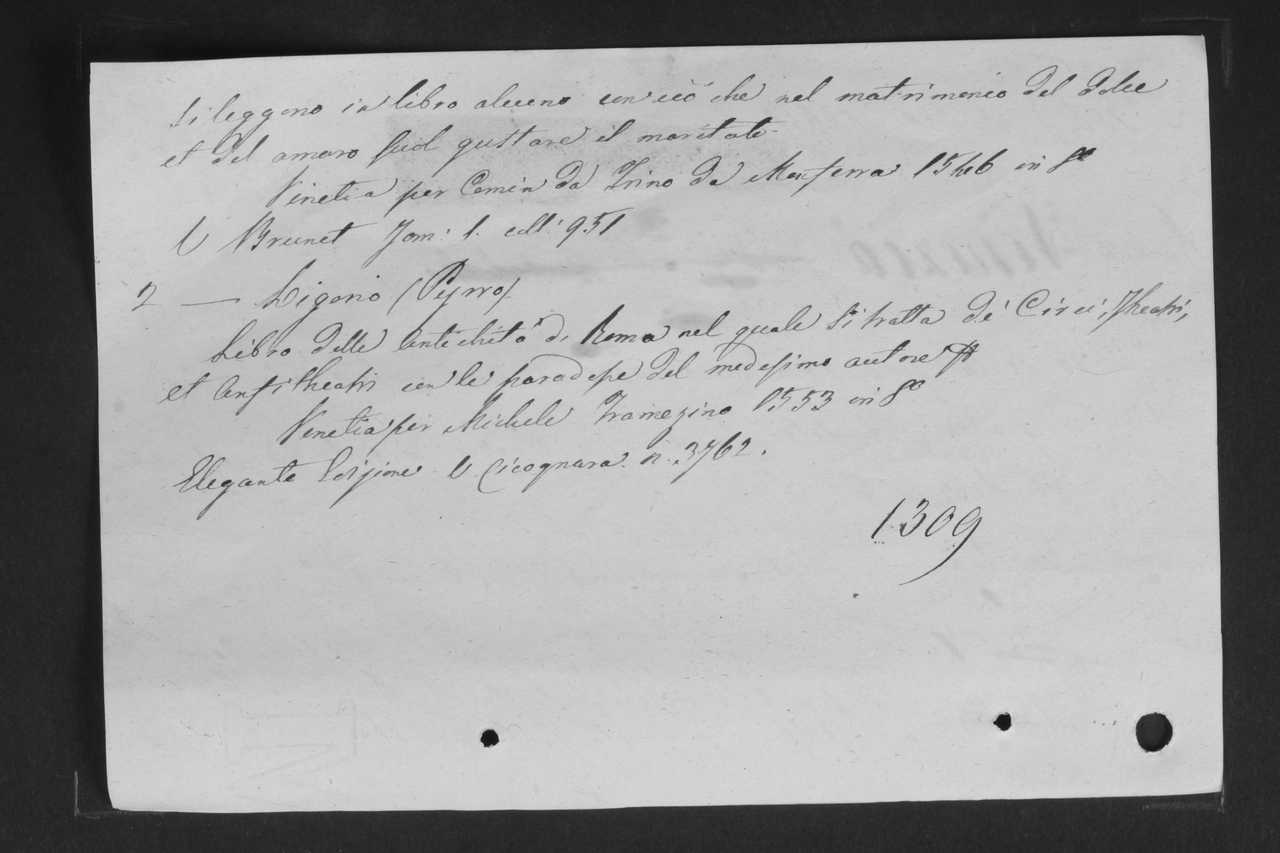 si leggono in libro alcuno con ciò che nel matrimonio del dolce
et del amaro suol gustare il maritato.
Vinetia per Comin da Trino da Monferra 1546 in 8º
V Brunet Tom: 1. coll: 951
2 — Ligorio (Pyrro)
Libro delle Antichità di Roma nel quale si tratta de' Circi, Theatri,
et Anfitheatri con le paradosse del medesimo autore
Venetia per Michele Tramezino 1553 in 8º
Elegante Edizione V Cicognara. n. 3762.
1309